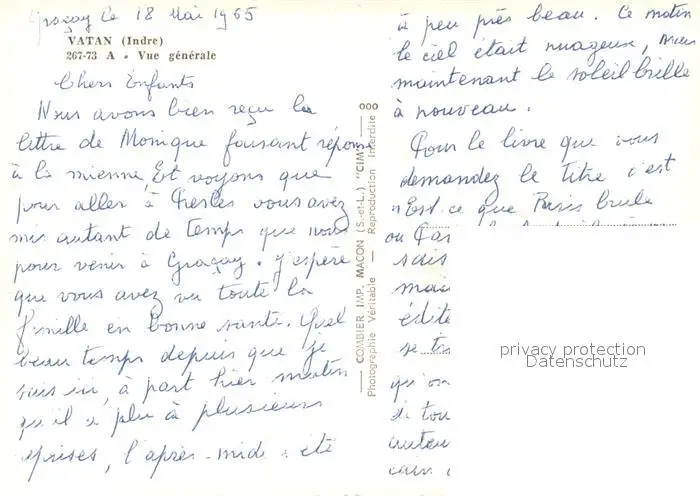 Graçay le 18 Mai 1965
VATAN (Indre)
267-73 A - Vue générale
Chers Enfants
Nous avons bien reçu la
lettre de Monique faisant réponse
à la mienne, Et voyons que
pour aller à Chesles vous avez
mis autant de temps que nous
pour venir à Graçay. J'espère
que vous avez vu toute la
famille en bonne santé. Quel
beau temps depuis que je
suis ici, à part hier matin
qu'il a plu à plusieurs
reprises, l'après-midi a été
COMBIER IMP. MACON (S.-et-L.) "CIM"
Photographie Véritable - Reproduction Interdite
à peu près beau. Ce matin
le ciel était nuageux, mais
maintenant le soleil brille
à nouveau.
Pour le livre que vous
demandez le titre c'est
"Est-ce que Paris brule
ou Par
sais
mais
édite
se
qu'on
de tou
auteu
privacy protection
Datenschutz